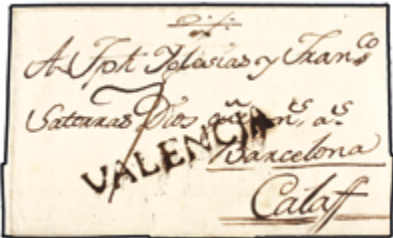 A Jph. Yglesias y Franco
Saterras Dios gūe ms. as.
VALENCIA
Barcelona
Calaff